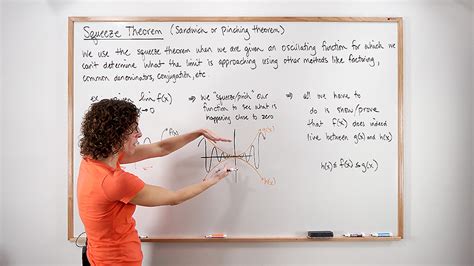 Squeeze Theorem (Sandwich or pinching theorem)
We use the squeeze theorem when we are given an oscillating function for which we
can't determine what the limit is approaching using other methods like factoring,
common denominators, conjugation, etc
lim f(x)
x→0
f(x)
⇒ We "squeeze/pinch" our
function to see what is
happening close to zero
g(x)
h(x)
⇒ all we have to
do is show/prove
that f(x) does indeed
live between g(x) and h(x)
h(x) ≤ f(x) ≤ g(x)